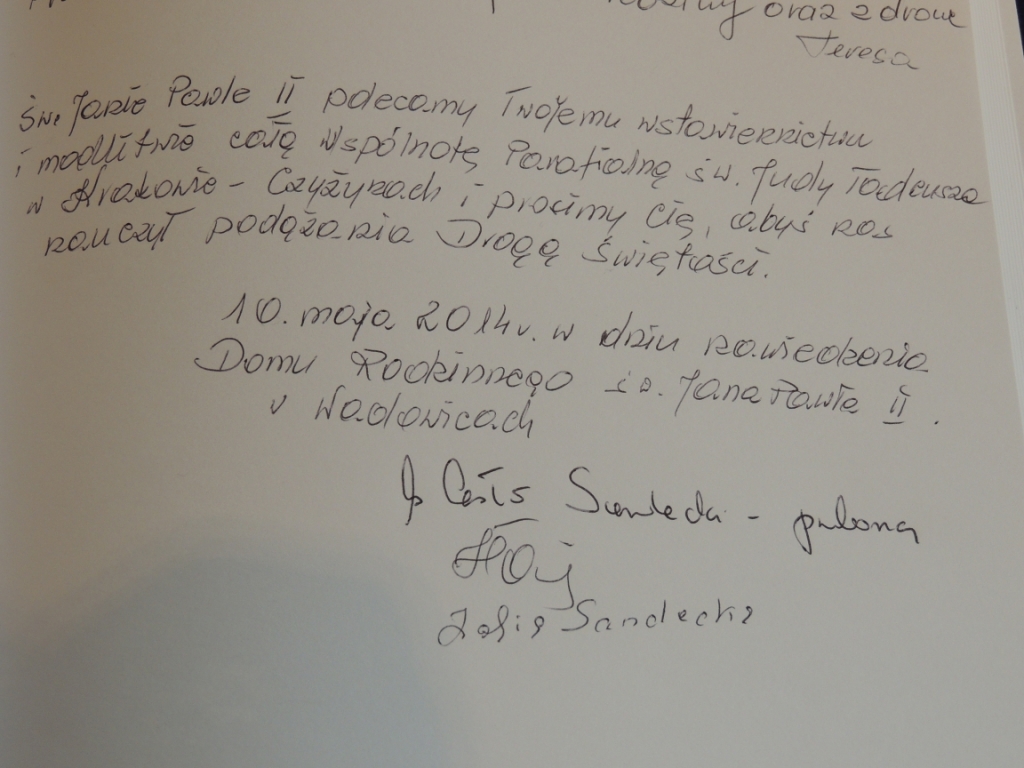 rodziny oraz zdrowie
Teresa
Św. Janie Pawle II polecamy Twojemu wstawiennictwu
i modlitwie całą Wspólnotę Parafialną św. Judy Tadeusza
w Krakowie - Czyżynach i prosimy Cię, abyś nas
nauczył podążania Drogą Świętości.
10. maja 2014 r. w dniu nawiedzenia
Domu Rodzinnego św. Jana Pawła II.
w Wadowicach
Sandecki -
Zofia Sandecka